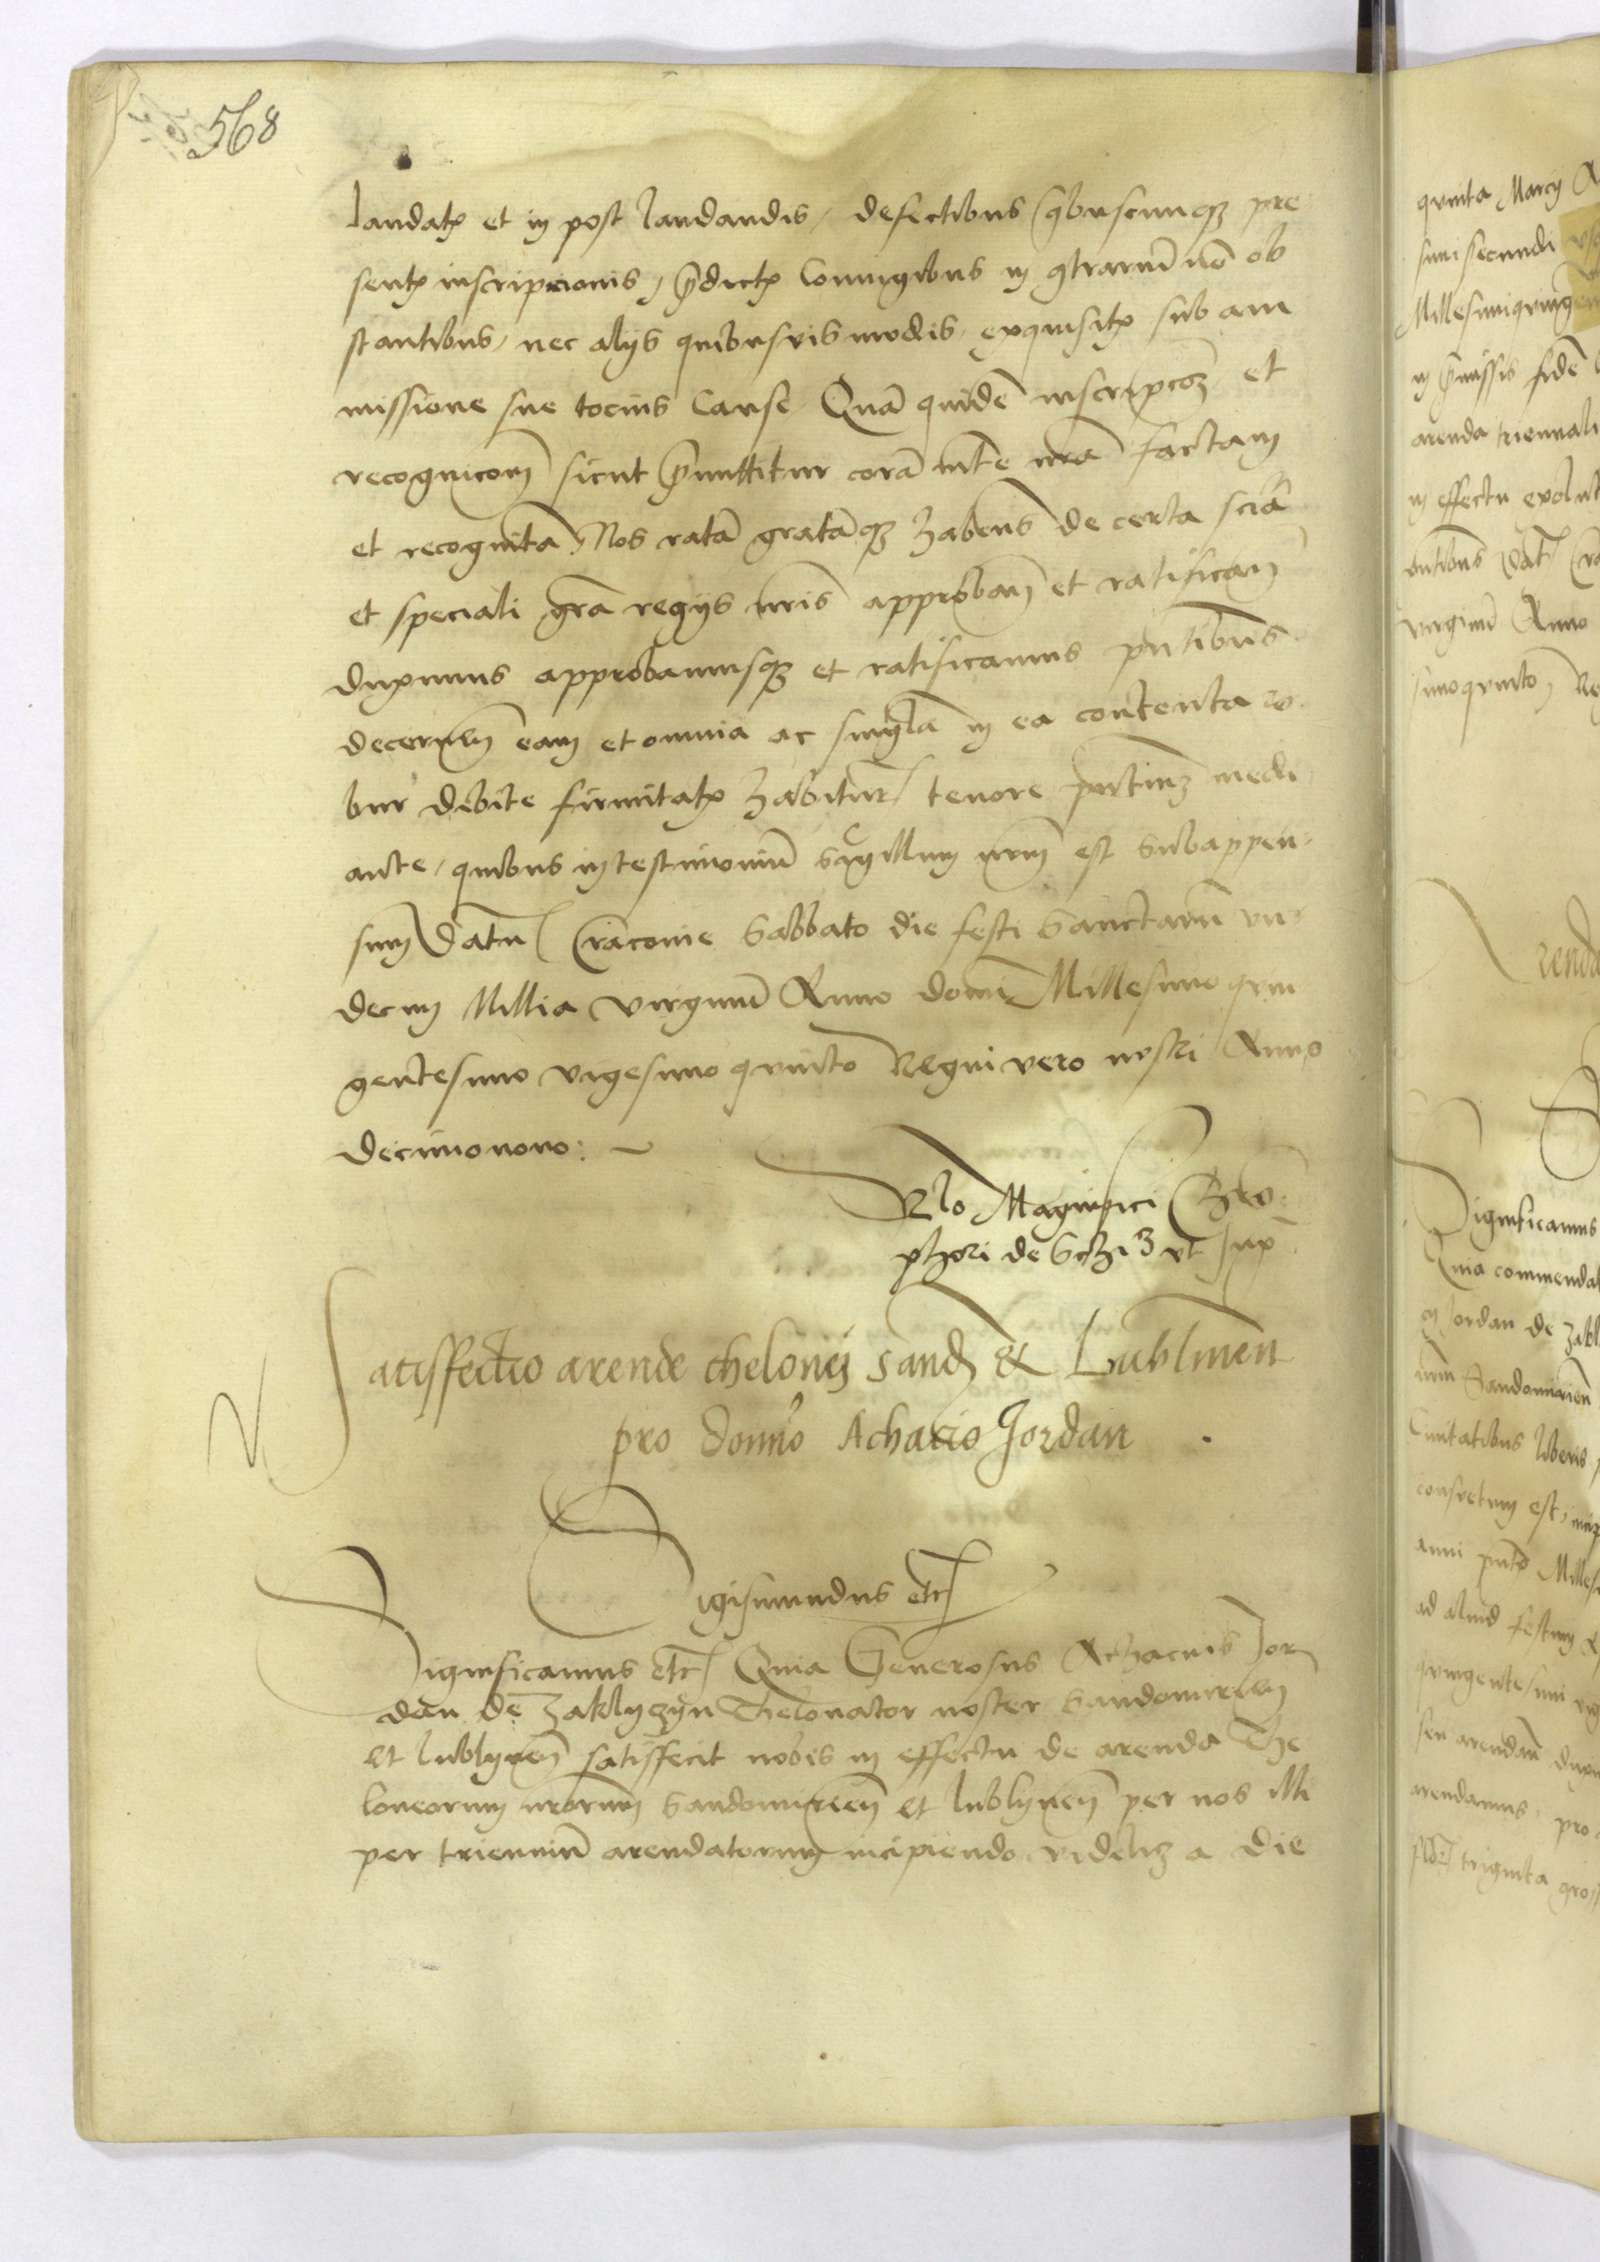 568
laudatis et in post laudandis, defectibus quibuscunque pre
sentis inscripcionis, predictis Coniugibus in contrarium non ob
stantibus, nec alijs quibusvis modis exquisitis sub am
missione sue tocius Cause. Quam quidem inscripcionem et
recognicionem sicut premittitur coram mte nra factam
et recognitam Nos ratam gratamque habens de certa scia
et speciali gra regijs nris approbam et ratificam
duximus approbamusque et ratificamus pntibus
decernen eam et omnia ac singula in ea contenta ro
bur debite firmitatis habitur tenore pntium medi
ante, quibus in testimonium Sigillum nrm est subappen
sum Datum Cracovie Sabbato die festi Sanctarum vn
decim Millia virginum Anno domini Millesimo quin
gentesimo vigesimo quinto Regni vero nostri Anno
decimonono:
Rlo Magnifici Cristo
phori de Schi3 vt sup
Satisffectio arende thelonei Sand et Lublinen
pro domino Achacio Jordan
Sigismundus etc
Significamus etc Quia Generosus Achacius Jor
dan de Zaklyczyn Thelonator noster Sandomirien
et lublynen satisfecit nobis in effectu de arenda The
loneorum nrorum Sandomirien et lublynen per nos illi
per triennium arendatorum incipiendo videlicet a die
quinta Marcij
simi secundi
Millesimiquingen
in premissis fidem
arenda triennali
in effectu
virginum Anno
simoquinto
Significamus
Quia commendat
Jordan de Zakl
nrm Sandomirien
Civitatibus
consvetum est,
anni
ad aliud festum
quingentesimi
arendamus pro
triginta